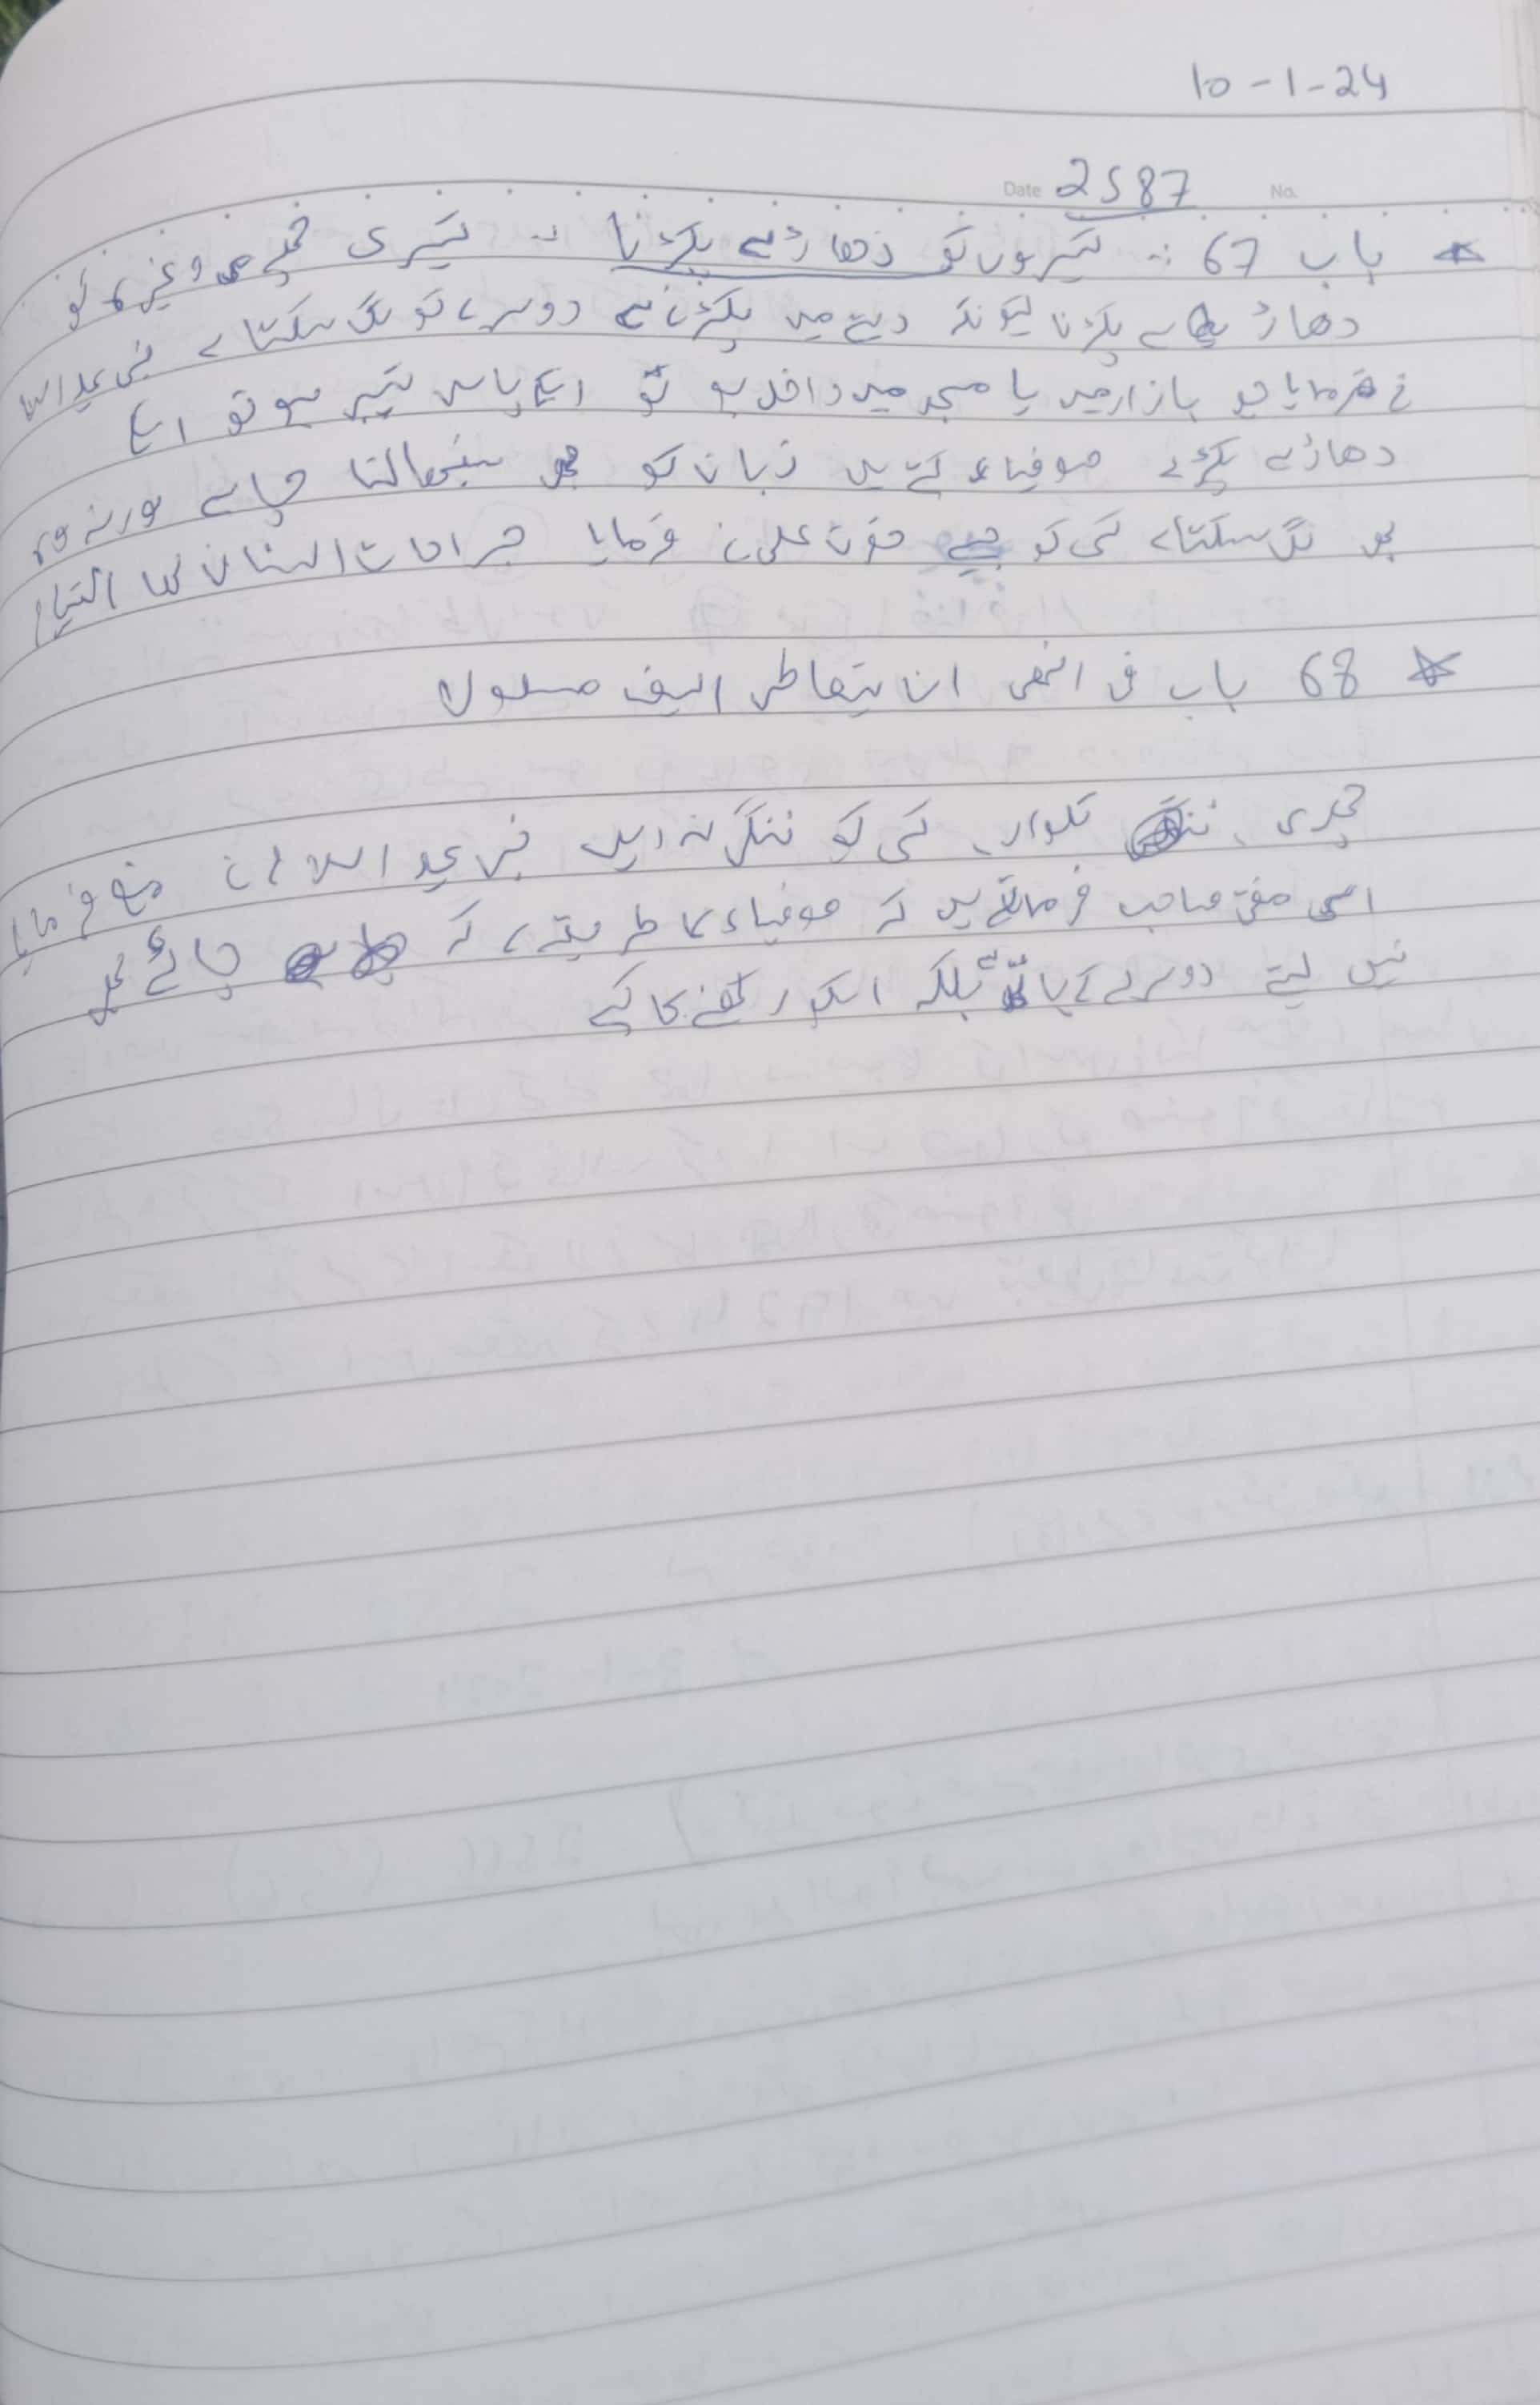 10-1-24
Date 2587 No.
* باب 67 :۔ تیروں کو دھاڑ سے پکڑنا :۔ تیری چھری وغیرہ کو
دھاڑ سے پکڑنا کیونکہ دستے میں پکڑنے سے دوسرے کو لگ سکتا ہے نبی علیہ السلا
نے فرمایا جو بازار میں یا مسجد میں داخل ہو تو اسکے پاس تیر ہو تو اسے
دھاڑ سے پکڑے صوفیاء کہتے ہیں زبان کو بھی سنبھالنا چاہیے ورنہ وہ
بھی لگ سکتا ہے کسی کو جیسے حضرت علی نے فرمایا جراحات السنان لھا التیام
* 68 باب فی النھی ان یتعاطی السیف مسلول
چھری، تلوار، کسی کو ننگی نہ دیں نبی علیہ السلام نے منع فرمایا
اسی مفتی صاحب فرماتے ہیں کہ صوفیاء کا طریقہ ہے کہ چائے بھی
نہیں لیتے دوسرے کے ہاتھ سے بلکہ اسکو رکھنے کا کہے